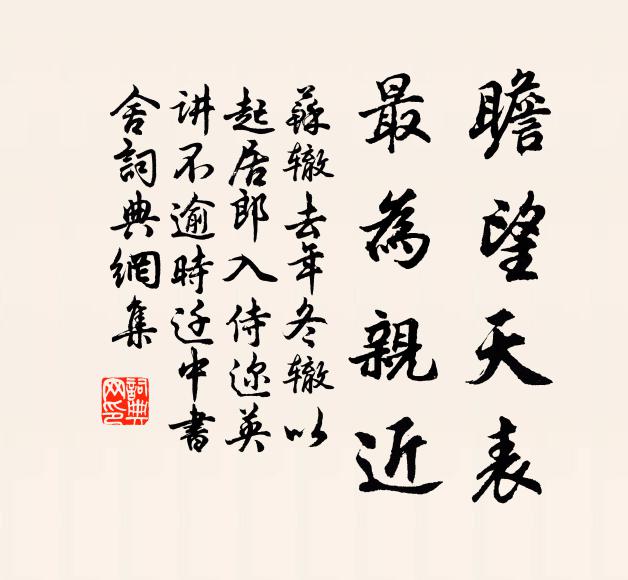 瞻望天表
最為親近
蘇辙去年冬辙以
起居郎入侍迩英
讲不逾時迁中書
舍詞典網集
詞典
网印